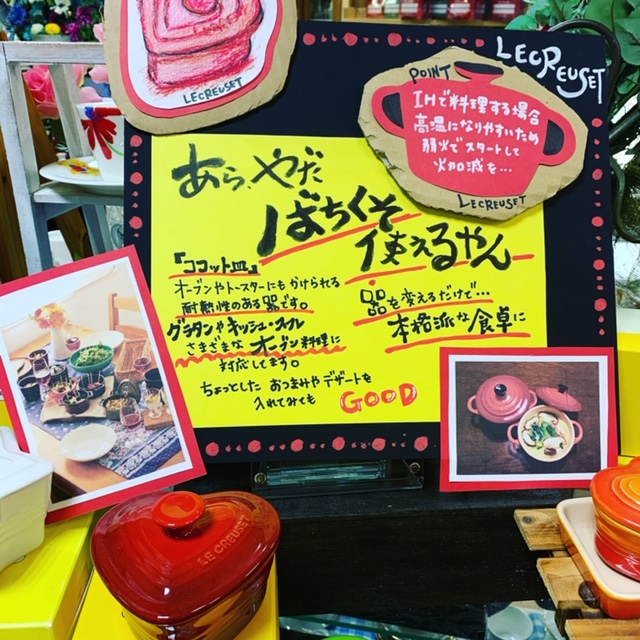 LECREUSET
LECREUSET
POINT
IHで料理する場合
高温になりやすいため
弱火でスタートして
火加減を…
LECREUSET
あら、やだ
ばちくそ
使えるやん
『ココット皿』
オーブンやトースターにもかけられる
耐熱性のある器です。
グラタンやキッシュ・スフレ
さまざまなオーブン料理に
対応してます。
ちょっとしたおつまみやデザートを
入れてみても GOOD
器を変えるだけで…
本格派な食卓に
LE CREUSET